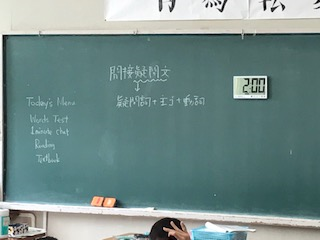 間接疑問文
↓
疑問詞+主う+動詞
2:00
Today's Menu
Words Test
1 minute chat
Reading
Textbook